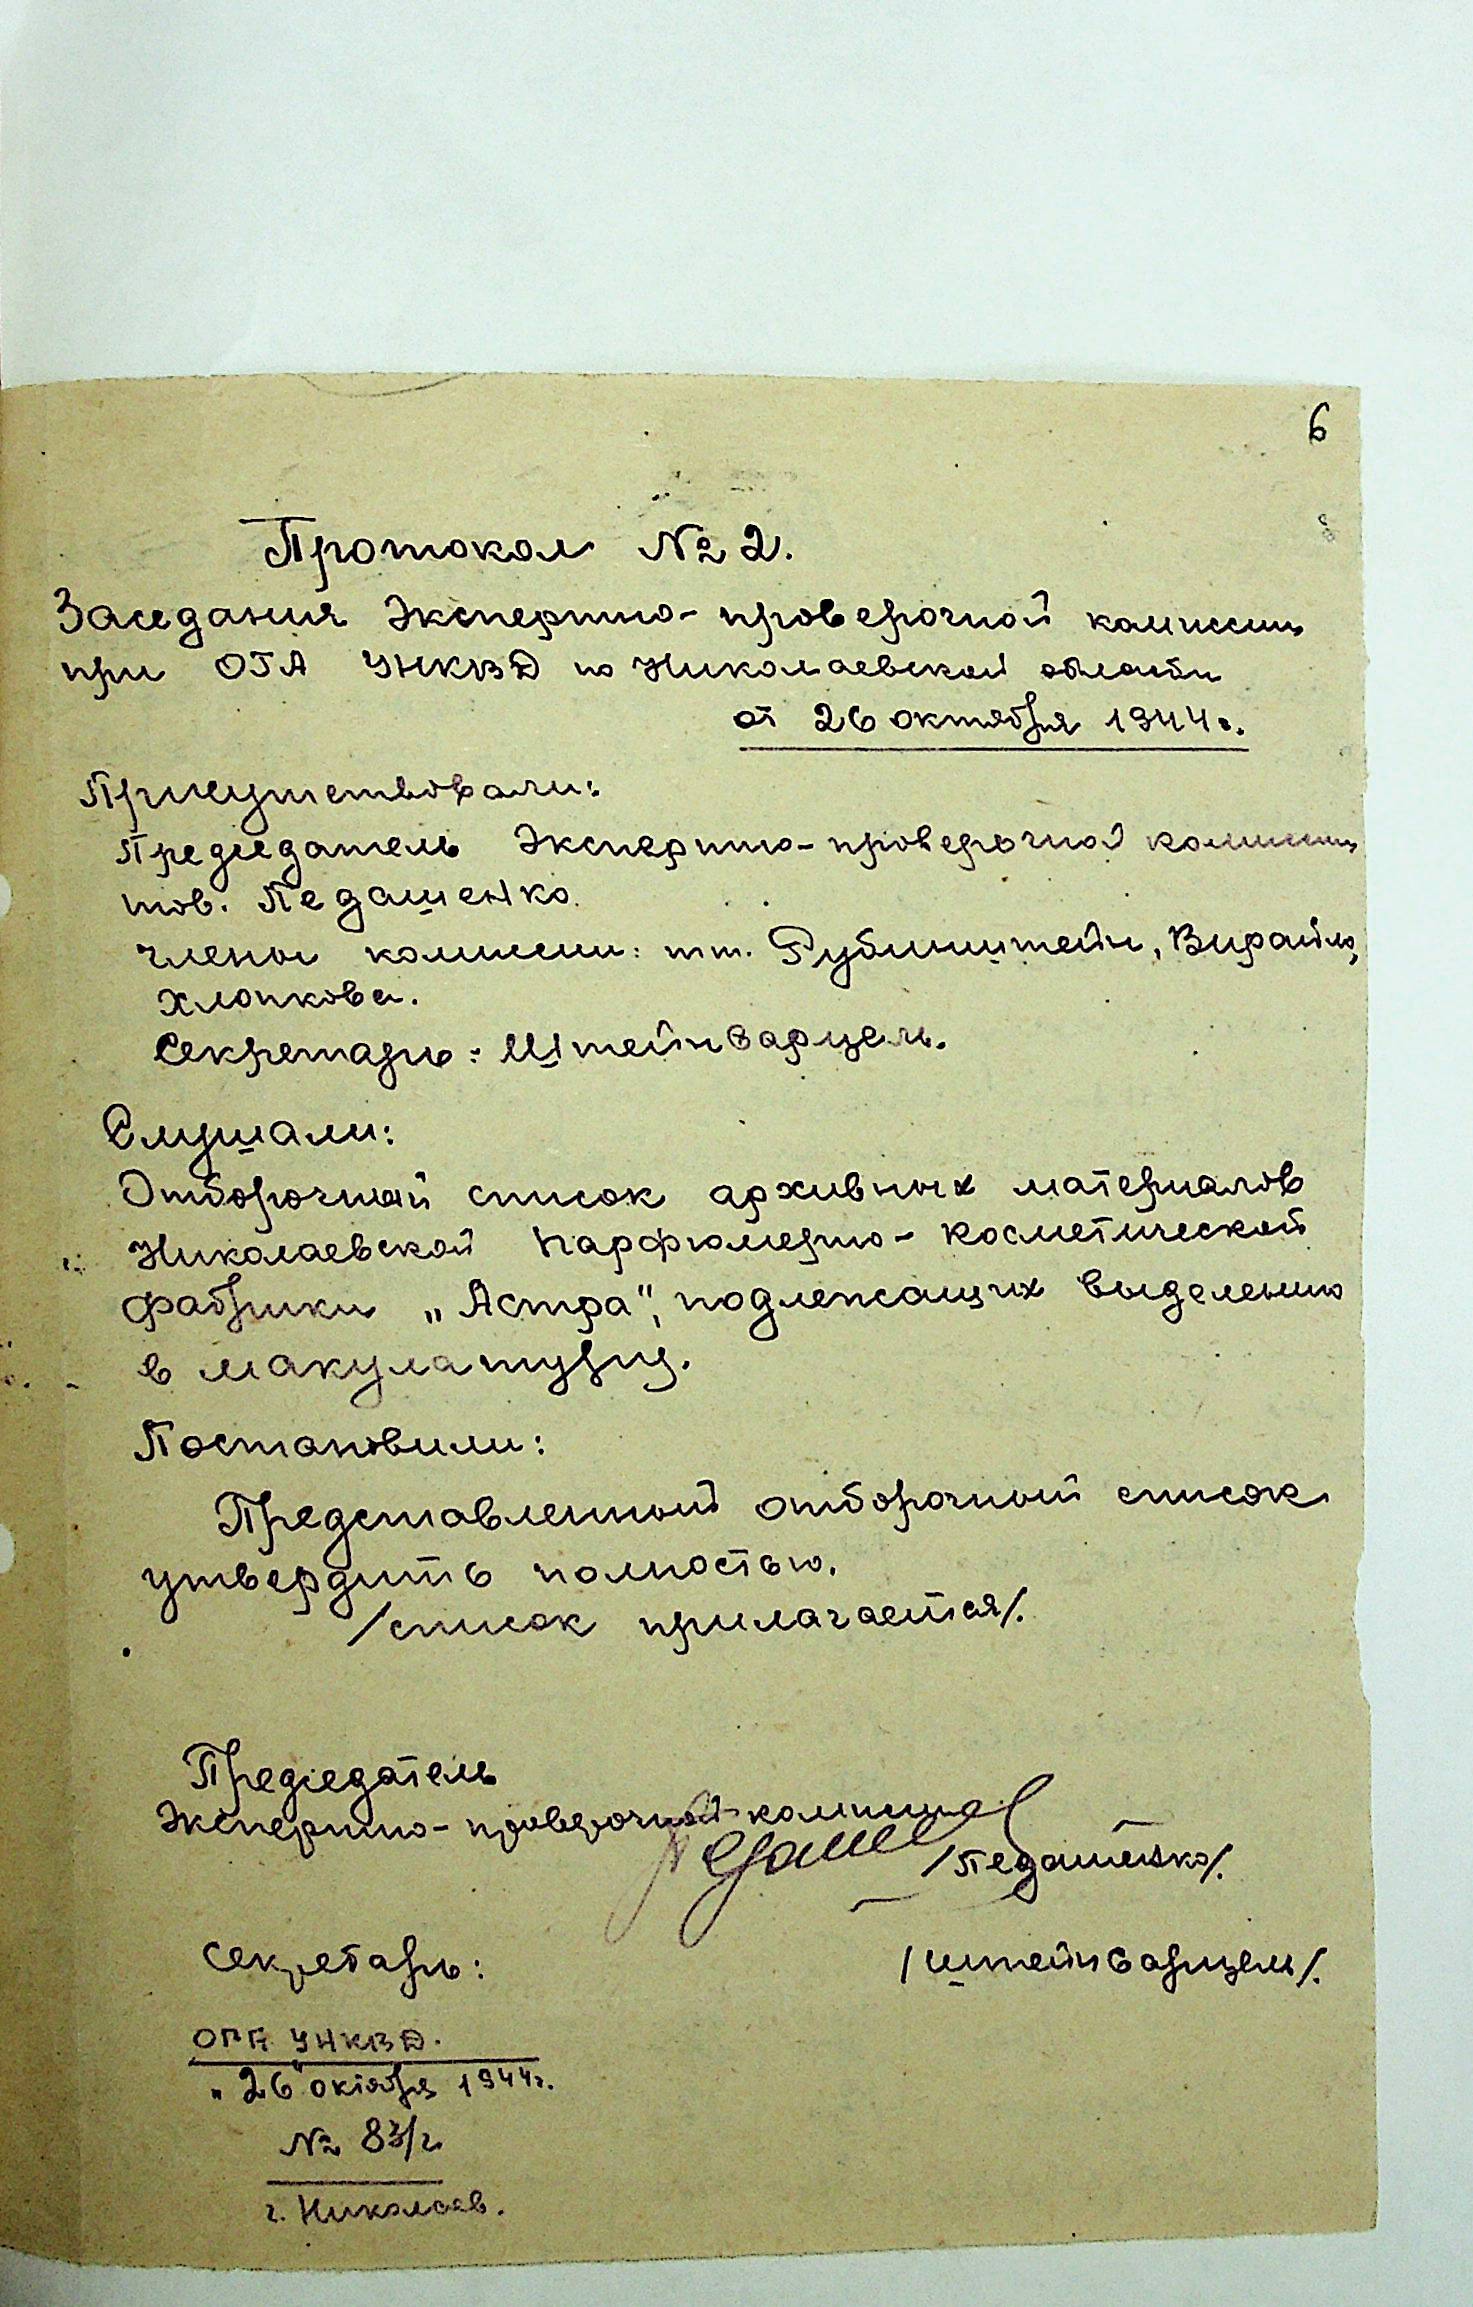 6
Протокол № 2.
Заседания Экспертно-проверочной комиссии
при ОГА УНКВД по Николаевской области
от 26 октября 1944 г.
Присутствовали:
Председатель Экспертно-проверочной комиссии
тов. Педашенко.
члены комиссии: тт. Рубинштейн, Вирайло,
Хлопкова.
Секретарь: Штейнварцель.
Слушали:
Отборочный список архивных материалов
Николаевской парфюмерно-косметической
фабрики „Астра", подлежащих выделению
в макулатуру.
Постановили:
Представленный отборочный список
утвердить полностью.
/список прилагается/.
Председатель
Экспертно-проверочной комиссии
/Педашенко/.
Секретарь:
/Штейнварцель/.
ОГА УНКВД.
„26" октября 1944 г.
№ 83/2
г. Николаев.